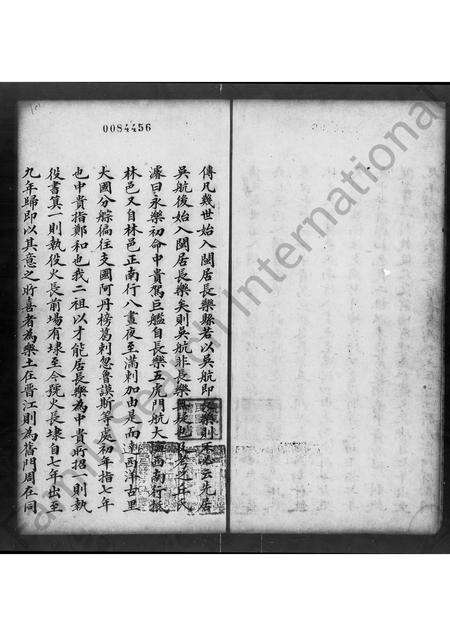 0084456
傳凡幾世始入閩居長樂縣若以吳航即長樂則不應云先居
吳航後始入閩居長樂矣則吳航非長樂
濠曰永樂初命中貴駕巨艦自長樂五虎門航大海西南行抵
林邑又自林邑正南行八晝夜至滿剌加由是而達西洋古里
大國分綜徧往支國阿丹榜葛剌忽魯謨斯等處初年指七年
也中貴指鄭和也我二祖以才能居長樂為中貴所招一則執
役書算一則執役火長前場有埭至今號火長埭自七年出至
九年歸即以其意之所喜者為樂土在晉江則為舊門周在同
FamilySearch International